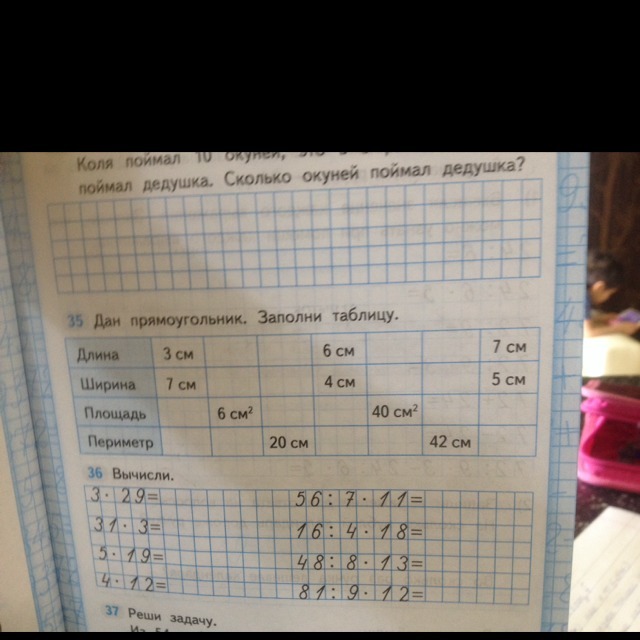 Коля поймал 10 окуней, это в
поймал дедушка. Сколько окуней поймал дедушка?
35 Дан прямоугольник. Заполни таблицу.
Длина 3 см 6 см 7 см
Ширина 7 см 4 см 5 см
Площадь 6 см² 40 см²
Периметр 20 см 42 см
36 Вычисли.
3 · 29 = 56 : 7 · 11 =
31 · 3 = 16 : 4 · 18 =
5 · 19 = 48 : 8 · 13 =
4 · 12 = 81 : 9 · 12 =
37 Реши задачу.
Из 54